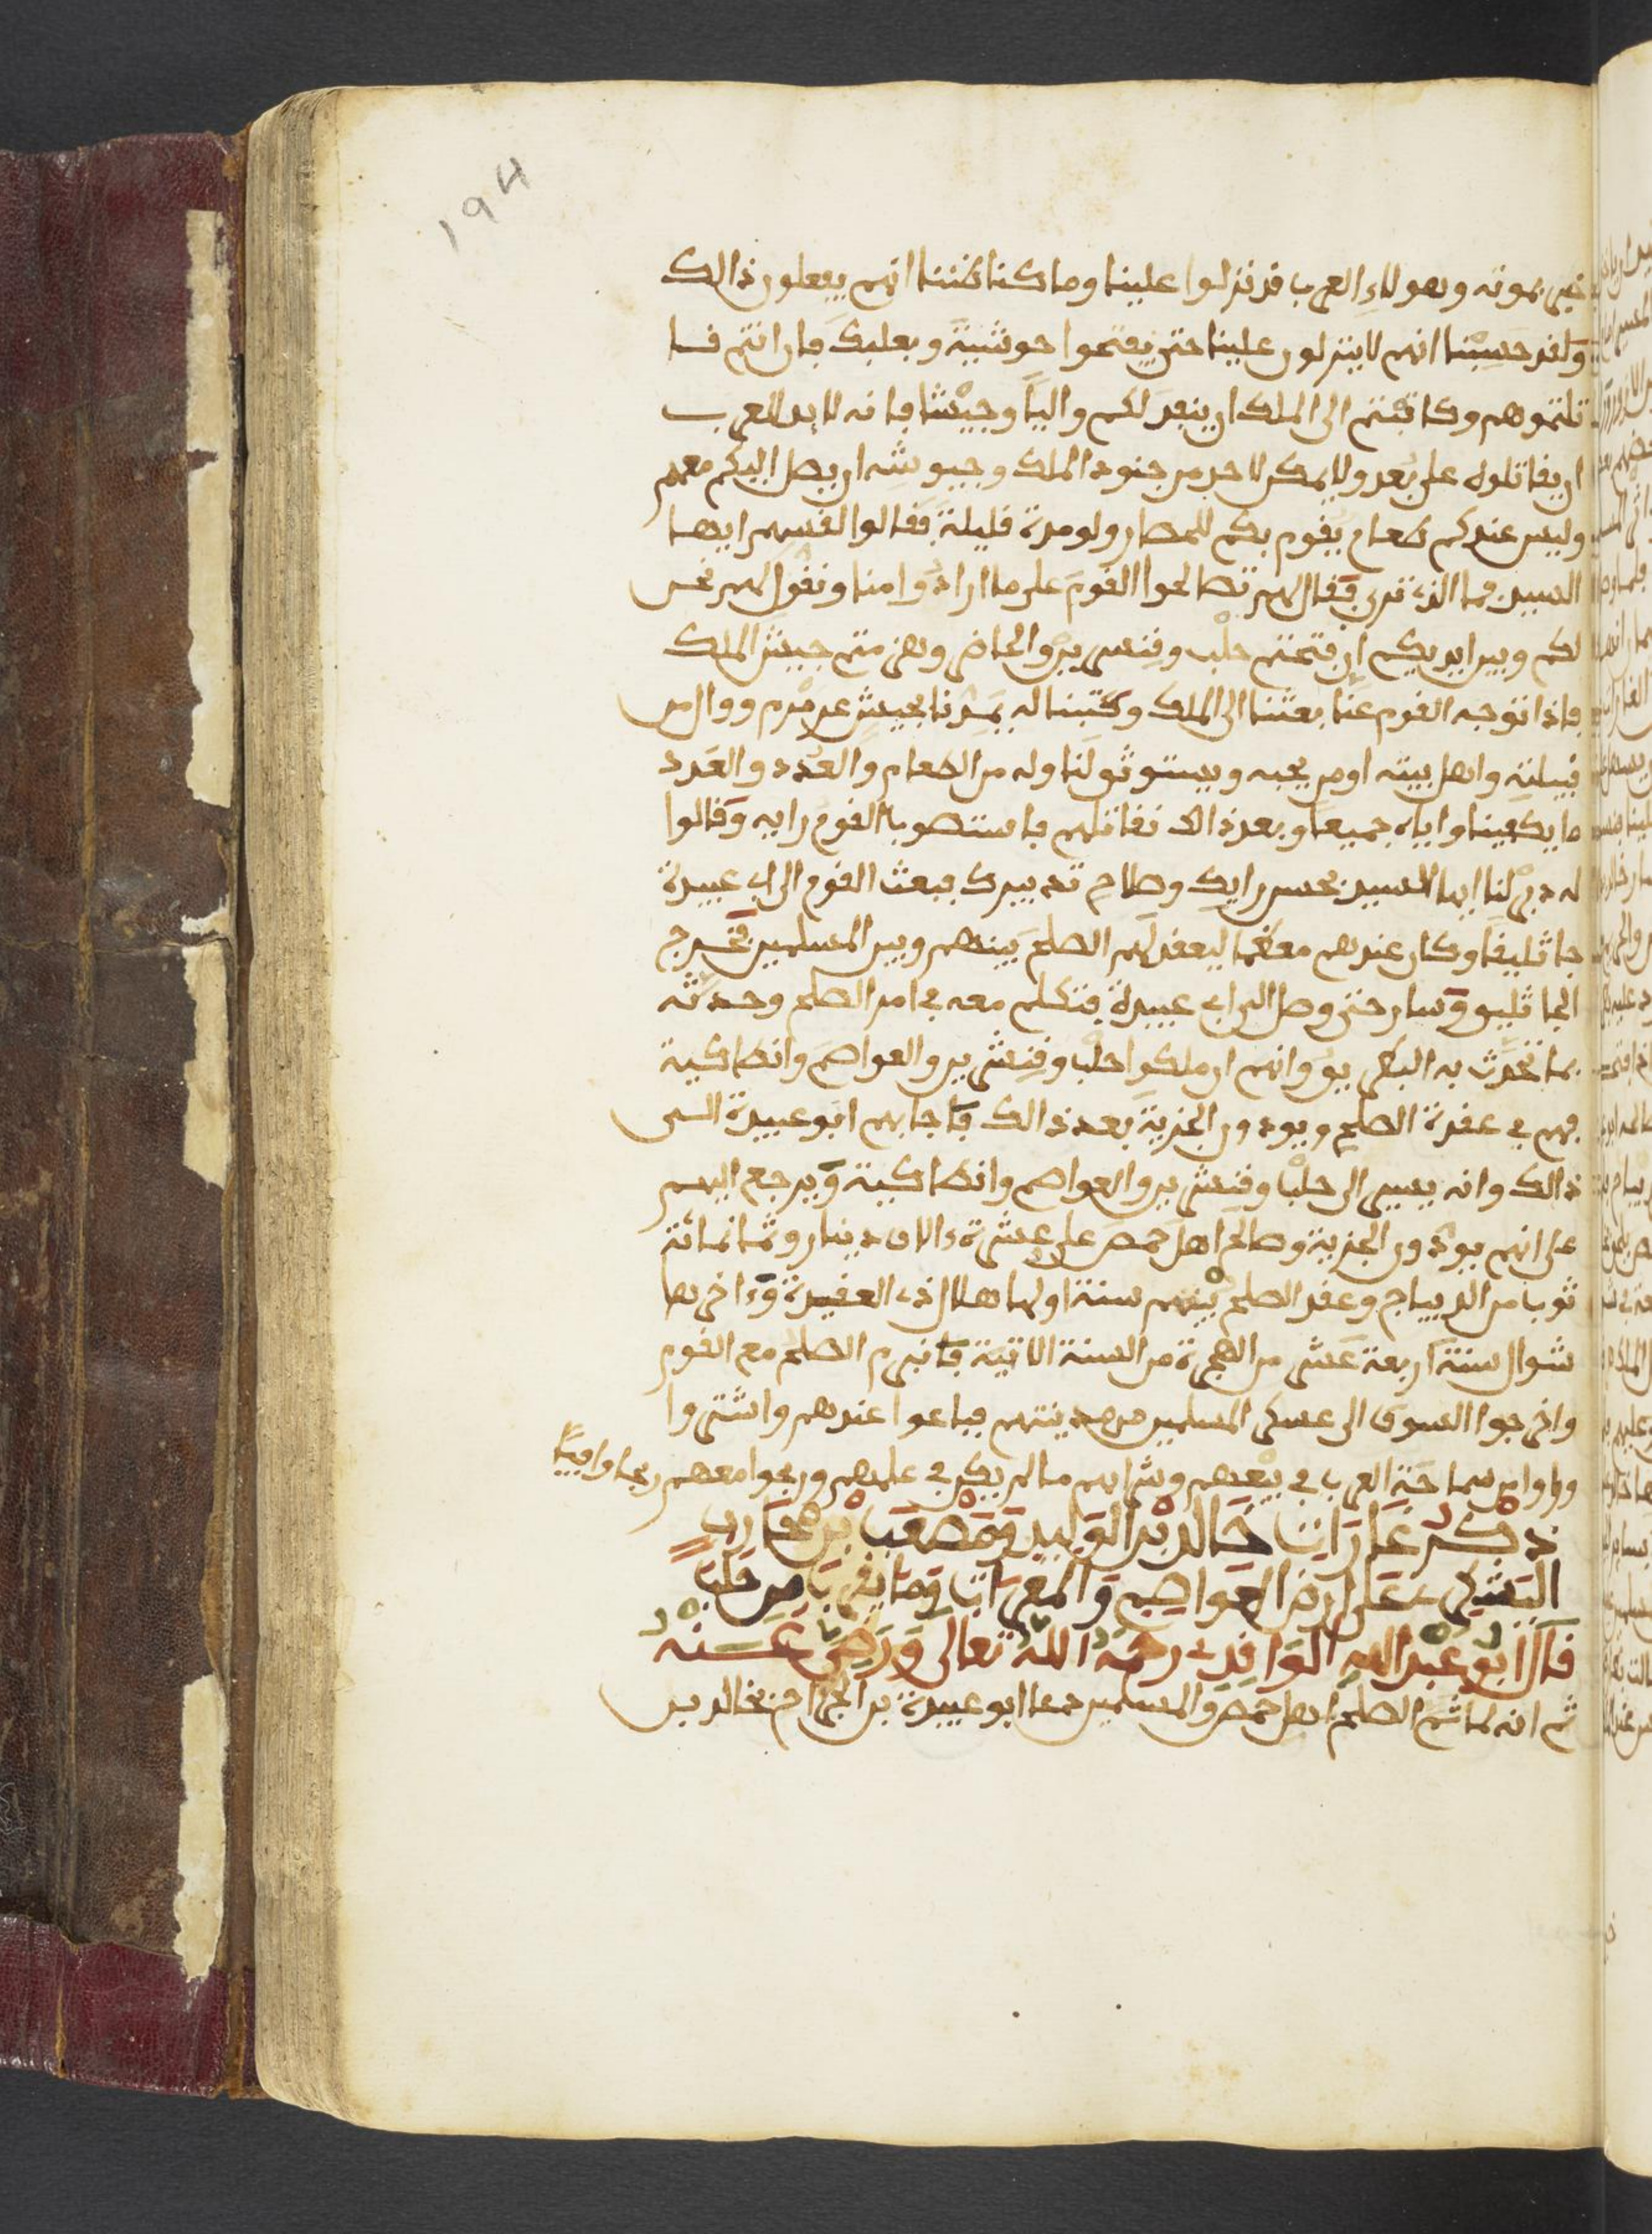 194
خبر بموته وهولاءِ العرب قد نزلوا علينا وما كنا ظننا انهم يفعلون ذالك
ولقد حسبنا انهم لا ينزلون علينا حتى يفتحوا جوشية وبعلبك فان انتم قا
تلتموهم وكاتبتم الى الملك ان ينفد لكم واليا وجيشا فانه لا بد للعرب
ان يقاتلوه على بعد ولا يمكن لاحد من جنود الملك وجيوشه ان يصل اليكم معهم
وليس عندكم طعام يقوم بكم للحصار ولو مدة قليلة فقالوا القسهم ايها
السيد فما الذي ترى فقال لهم تصالحوا القوم على ما ارادوا منا ونقول لهم نحن
لكم وبين ايديكم ان فتحتم حلب وقنسرين والحاضر وهزمتم جيش الملك
فاذا توجه القوم عنا بعثنا الى الملك وكتبنا له يمدنا بجيش عرمرم ووال من
قبيلته واهل بيته او من يحبه ويستوثق لنا وله من الطعام والعدد والعدد
ما يكفينا واياه جميعا وبعد ذالك نقاتلهم فاستصوب القوم رايه وقالوا
له دبر لنا ايها السيد بحسن رايك وصلاح تدبيرك فبعث القوم الى ابي عبيدة
جاثليقا وكان عندهم معظما ليعقد لهم الصلح بينهم وبين المسلمين فخرج
الجاثليق وسار حتى وصل الى ابي عبيدة فتكلم معه في امر الصلح وحدثه
بما تحدث به البطريق وانهم ان ملكوا حلب وقنشرين والعواصم وانطاكية
فهم في عقدة الصلح ويودون الجزية بعد ذالك فاجابهم ابو عبيدة الى
ذالك وانه يسير الى حلب وقنشرين والعواصم وانطاكية ويرجع اليهم
على انهم يودون الجزية وصالح اهل حمص على عشرة ءالاف دينار وثمانمائة
ثوب من الديباج وعقد الصلح بينهم سنة اولها هلال ذي القعيدة وءاخرها
شوال سنة اربعة عشر من الهجرة من السنة الاتية فانبرم الصلح مع القوم
واخرجوا السوق الى عسكر المسلمين من مدينتهم فباعوا عندهم واشتروا
وراوا من سماحة العرب في بيعهم وشرائهم ما لم يكن في علمهم وربحوا معهم ربحا وافيا
ذكر غارات خالد بن الوليد ومصعب بن محارب
اليشكري على ارض العواصم والمعرات وما يقرب من حلب
قال ابو عبد الله الواقدي رحمه الله تعالى ورضي عنه
ثم انه لما تم الصلح لاهل حمص والمسلمين دعا ابو عبيدة بن الجراح بخالد بن